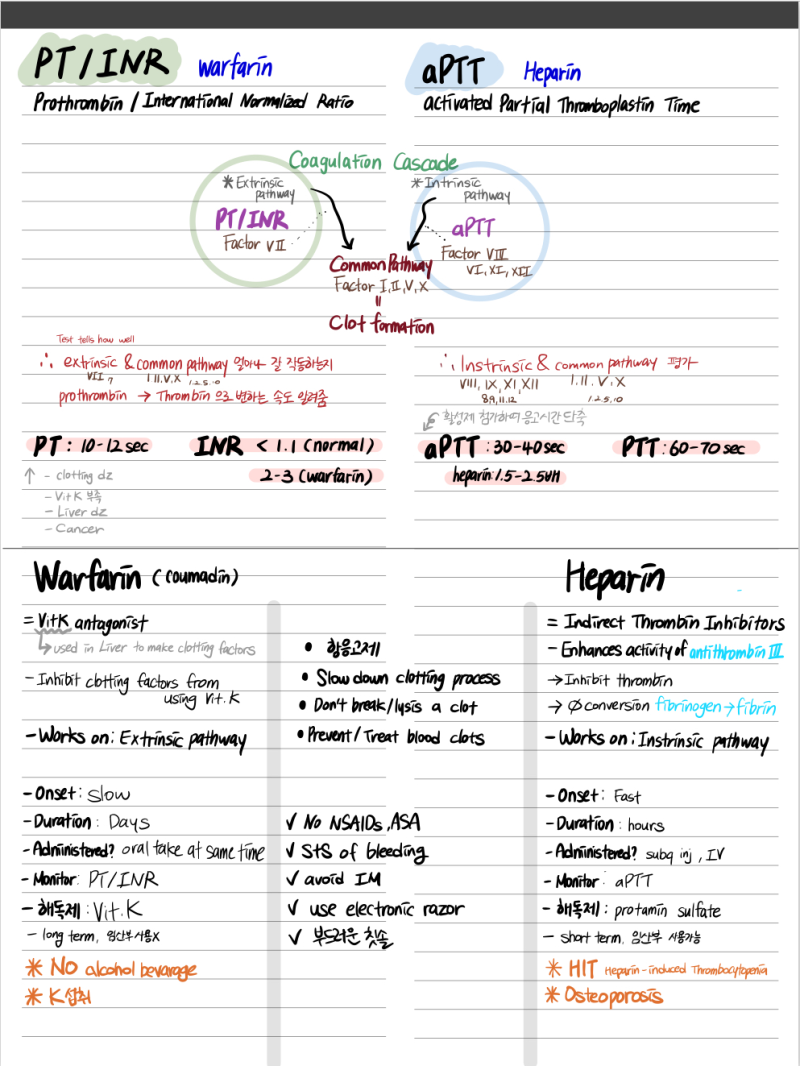 PT/INR warfarin
Prothrombin / International Normalized Ratio
aPTT Heparin
activated Partial Thromboplastin Time
Coagulation Cascade
* Extrinsic pathway
PT/INR
Factor VII
* Intrinsic pathway
aPTT
Factor VIII
VI, XI, XII
Common Pathway
Factor I, II, V, X
=
Clot formation
Test tells how well
∴ extrinsic & common pathway 얼마나 잘 작동하는지
VII 7 I.II.V.X 1.2.5.10
prothrombin → Thrombin 으로 변하는 속도 알려줌
PT : 10-12 sec INR < 1.1 (normal)
2-3 (warfarin)
↑ - clotting dz
- Vit K 부족
- Liver dz
- Cancer
∴ Instrinsic & common pathway 평가
VIII, IX, XI, XII I. II. V. X
8.9.11.12 1.2.5.10
활성제 첨가하여 응고시간 단축
aPTT : 30-40 sec PTT : 60-70 sec
heparin : 1.5-2.5배
Warfarin (coumadin)
= Vit K antagonist
↳ used in Liver to make clotting factors
- Inhibit clotting factors from
using Vit. K
- Works on : Extrinsic pathway
- Onset : Slow
- Duration : Days
- Administered? oral take at same time
- Monitor : PT/INR
- 해독제 : Vit. K
- long term, 임산부 사용X
* No alcohol bevarage
* K섭취
• 항응고제
• Slow down clotting process
• Don't break/lysis a clot
• Prevent/Treat blood clots
✓ No NSAIDs, ASA
✓ STS of bleeding
✓ avoid IM
✓ use electronic razor
✓ 부드러운 칫솔
Heparin
= Indirect Thrombin Inhibitors
- Enhances activity of antithrombin III
→ Inhibit thrombin
→ ∅ conversion fibrinogen → fibrin
- Works on : Instrinsic pathway
- Onset : Fast
- Duration : hours
- Administered? subq inj, IV
- Monitor : aPTT
- 해독제 : protamin sulfate
- short term, 임산부 사용가능
* HIT Heparin-induced Thrombocytopenia
* Osteoporosis